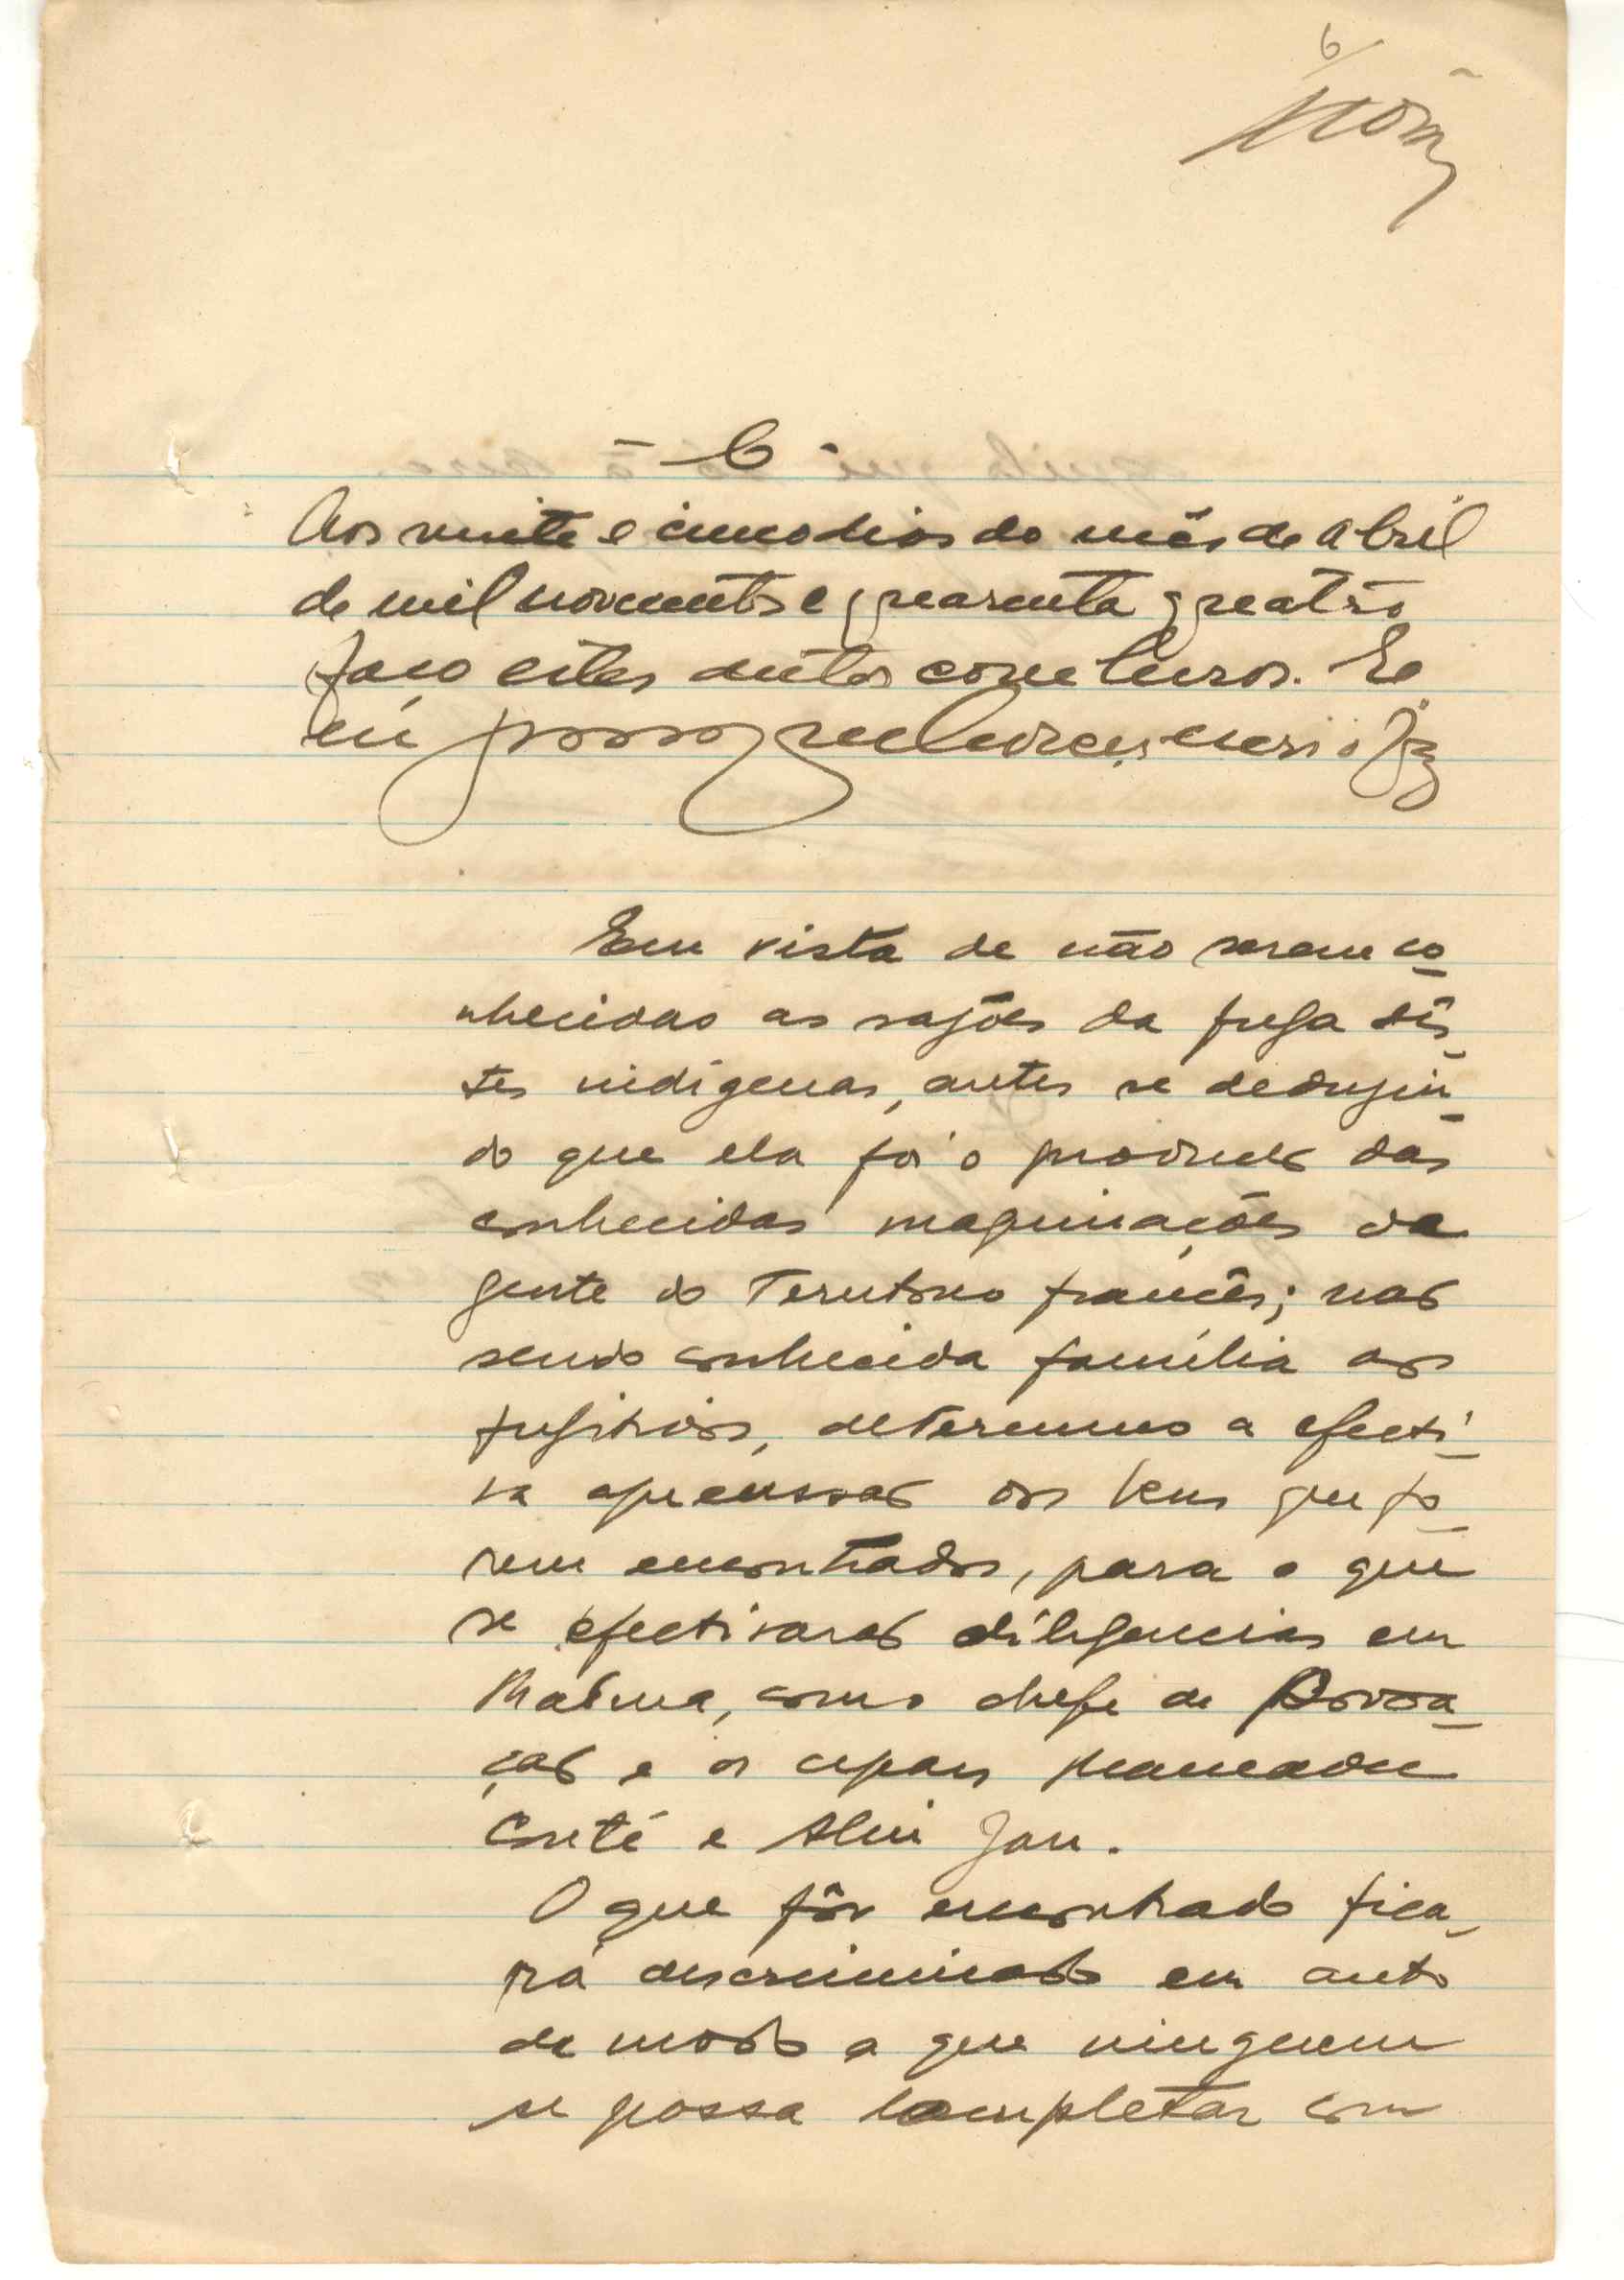 6
- C -
Aos vinte e cinco dias do mês de Abril
de mil novecentos e quarenta quatro
faço estes autos conclusos. E
eu
Em vista de não serem co-
nhecidas as rasões da fuga dês-
tes indígenas, antes se deduzin-
do que ela foi o produto das
conhecidas maquinações da
gente do Territorio francês; não
sendo conhecida família aos
fugitivos, determino a efecti-
va apreensão dos bens que fo-
rem encontrados, para o que
se efectivarão diligencias em
com o chefe de Povoa-
ção e os cipais Mamadu
Conté e Jau.
O que fôr encontrado fica-
rá descriminado em auto
de modo a que ninguem
se possa locupletar com